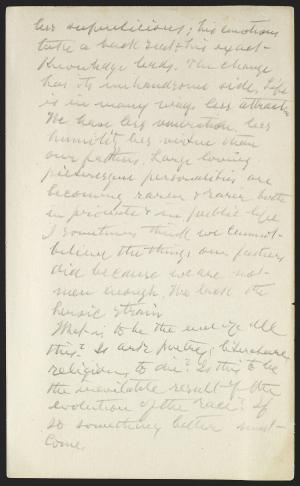 less superstitious; his emotions
take a back seat & his exact
knowledge leads. The change
has its unhandsome side. Life
is in many ways less attractive
We have less veneration, less
humility, less virtue than
our fathers. Large loving
picturesque personalities are
becoming rarer & rarer both
in private & in public life
I sometimes think we cannot
believe the things our fathers
did because we are not
men enough. We lack the
heroic strain
What is to be the end of all
this? Is art & poetry, literature,
religion, to die? Is this to be
the inevitable result of the
evolution of the race? If
so something better must
come.